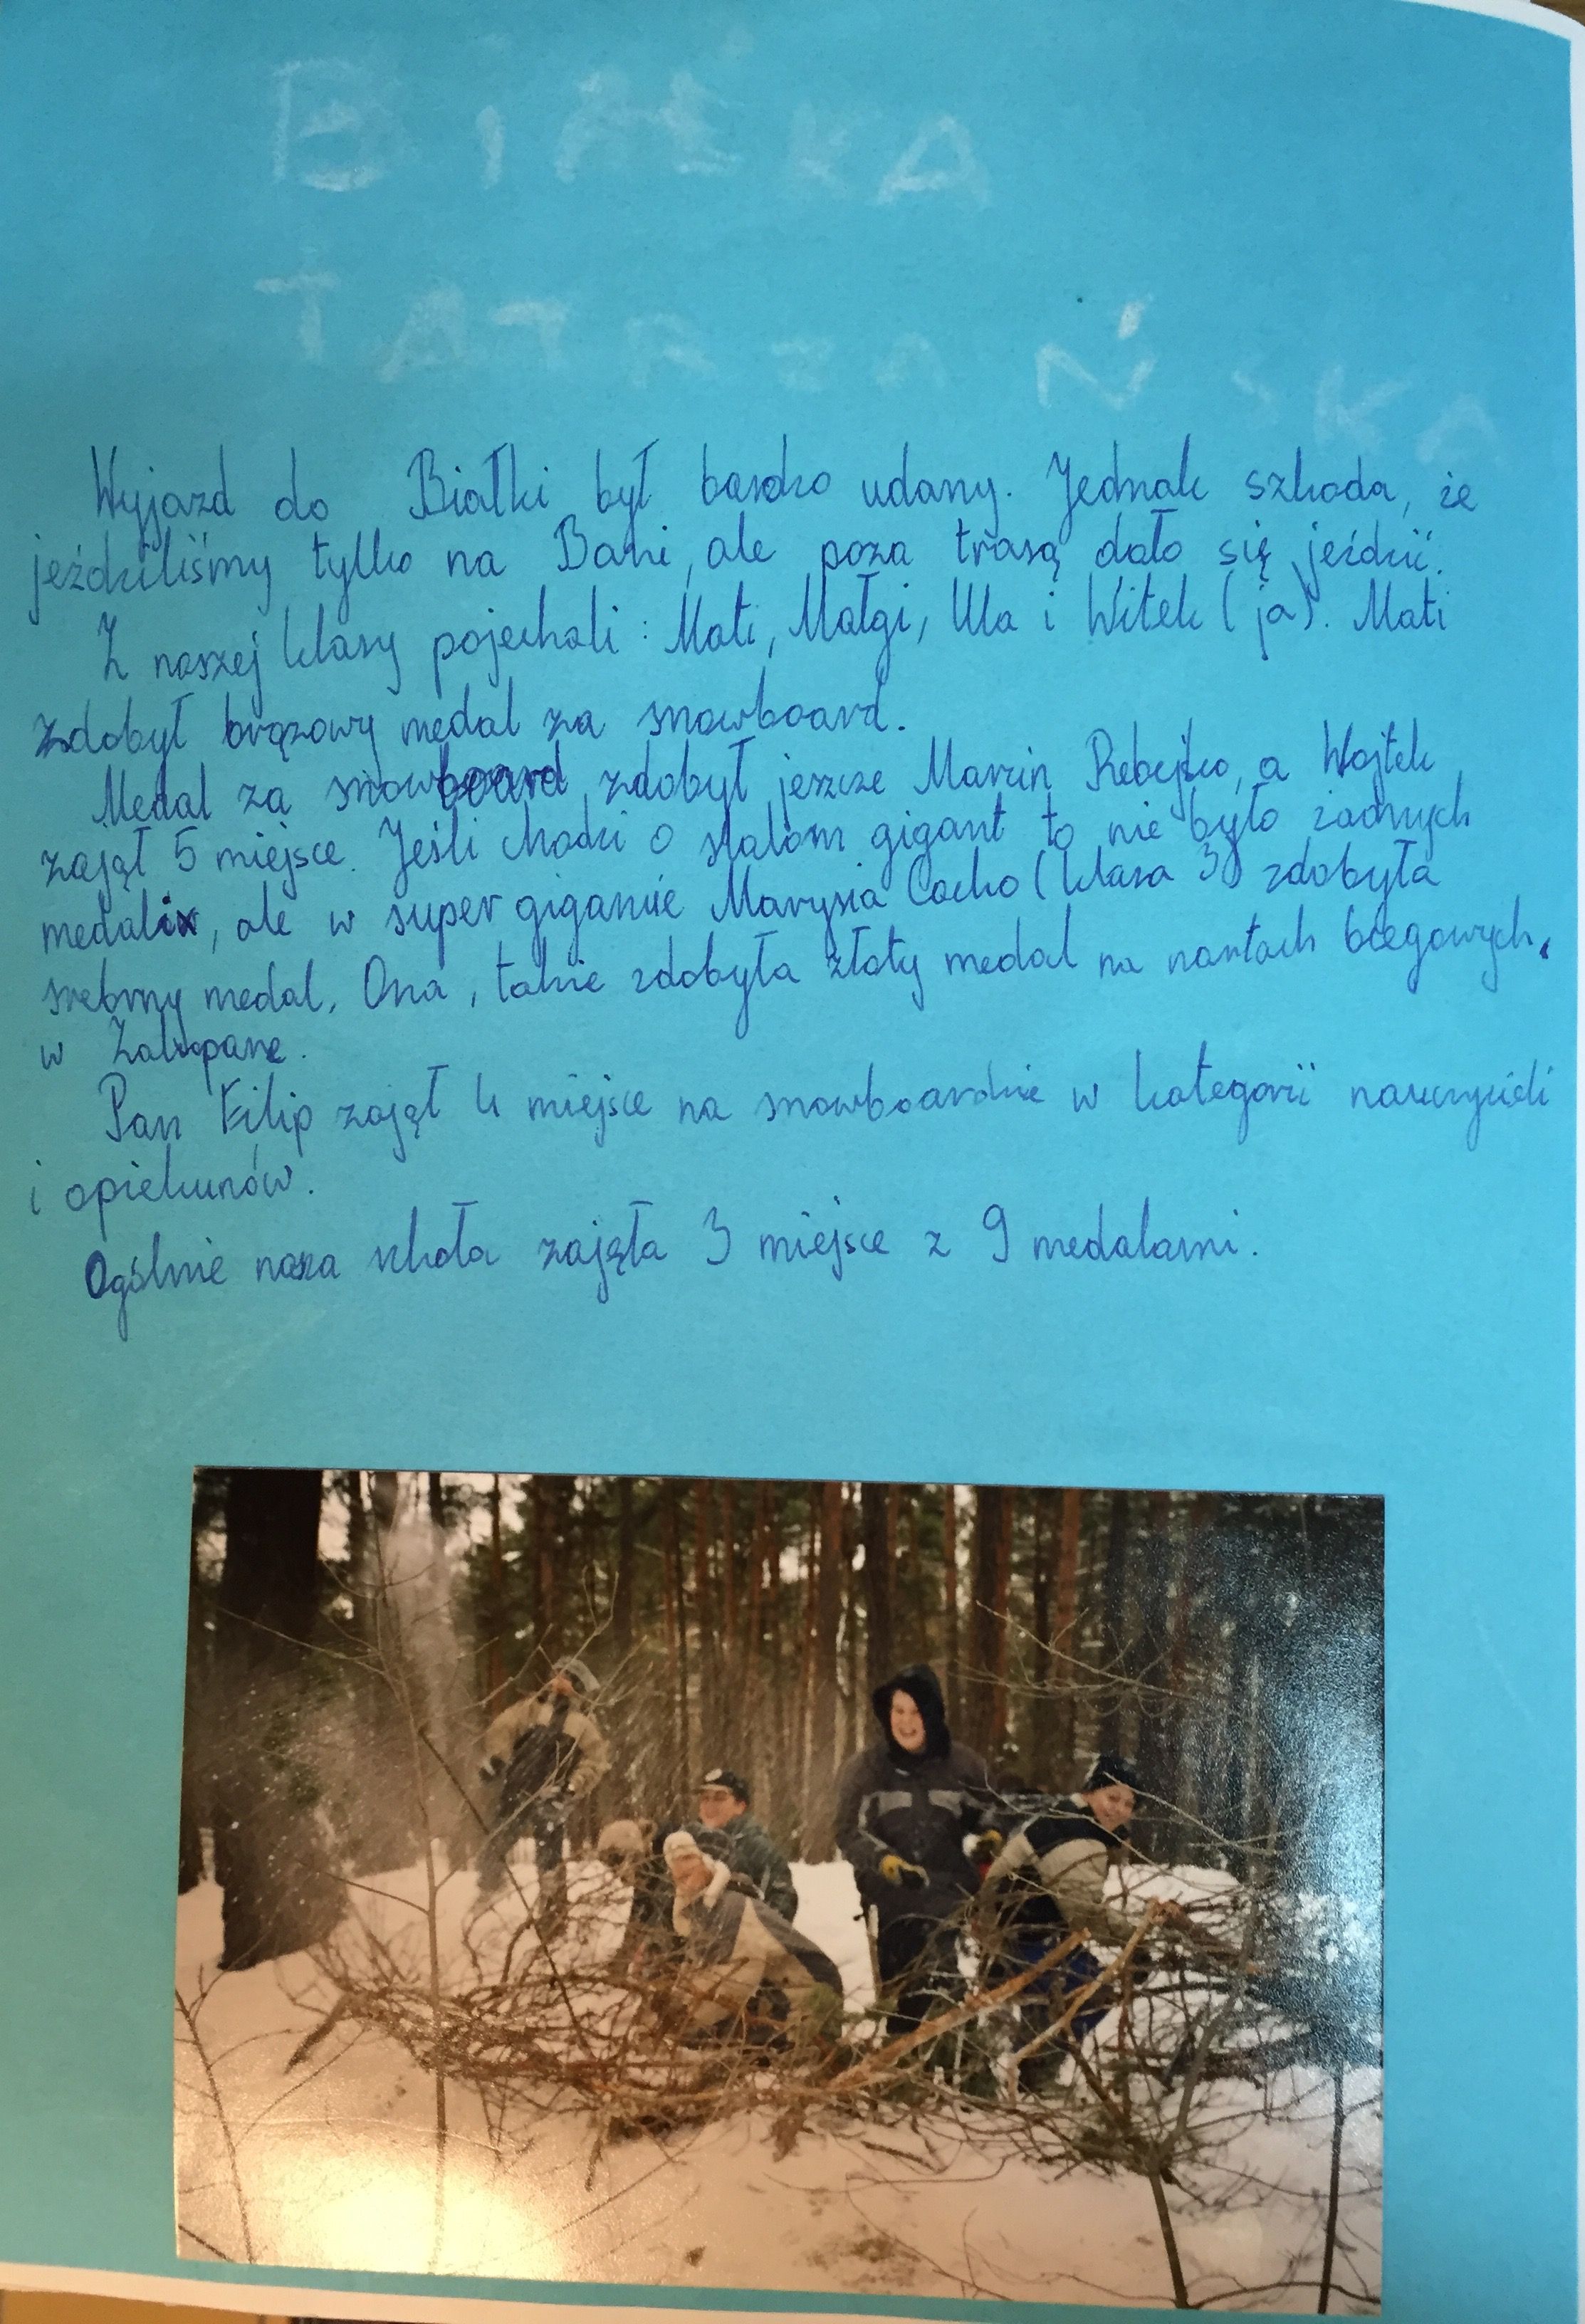 BIAŁKA
TATRZAŃSKA
Wyjazd do Białki był bardzo udany. Jednak szkoda, że
jeździliśmy tylko na Bani, ale poza trasą dało się jeździć.
Z naszej klasy pojechali: Mati, Małgi, Ula i Witek (ja). Mati
zdobył brązowy medal za snowboard.
Medal za snowboard zdobył jeszcze Marcin, a Wojtek
zajął 5 miejsce. Jeśli chodzi o slalom gigant to nie było żadnych
medali, ale w super gigancie Marysia (klasa 3) zdobyła
srebrny medal. Ona, także zdobyła złoty medal na nartach biegowych,
w Zakopane.
Pan Filip zajął 4 miejsce na snowboardzie w kategorii nauczycieli
i opiekunów.
Ogólnie nasza szkoła zajęła 3 miejsce z 9 medalami.